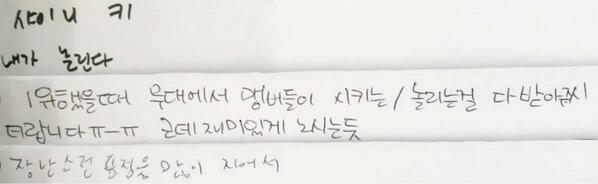 샤이니 키
내가 놀린다
1위했을때 무대에서 멤버들이 시키는/놀리는걸 다 받아줘찌
더랍니다ㅠㅡㅠ 근데 재미있게 노시는듯
장난스런 표정을 많이 지어서